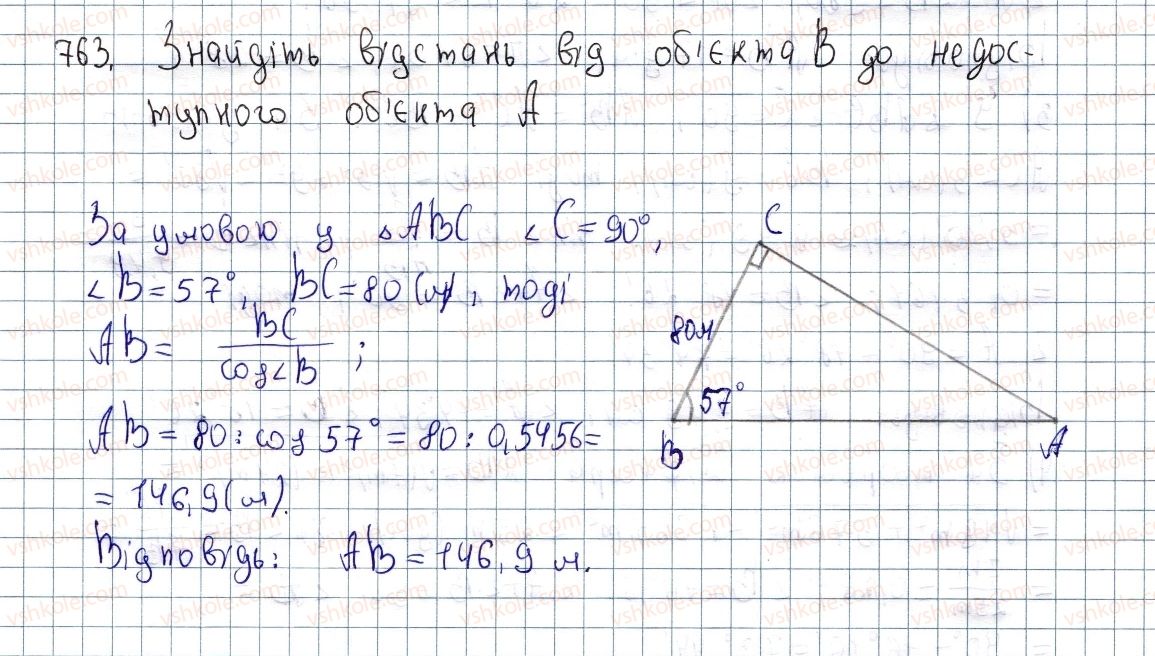 763. Знайдіть відстань від об'єкта B до недос-
тупного об'єкта A
За умовою у △ABC ∠C = 90°,
∠B = 57°, BC = 80 (м), тоді
AB = BC / cos∠B ;
AB = 80 : cos 57° = 80 : 0,5456 =
= 146,9 (м).
Відповідь: AB = 146,9 м.
C
80м
57°
B
A
vshkole.com